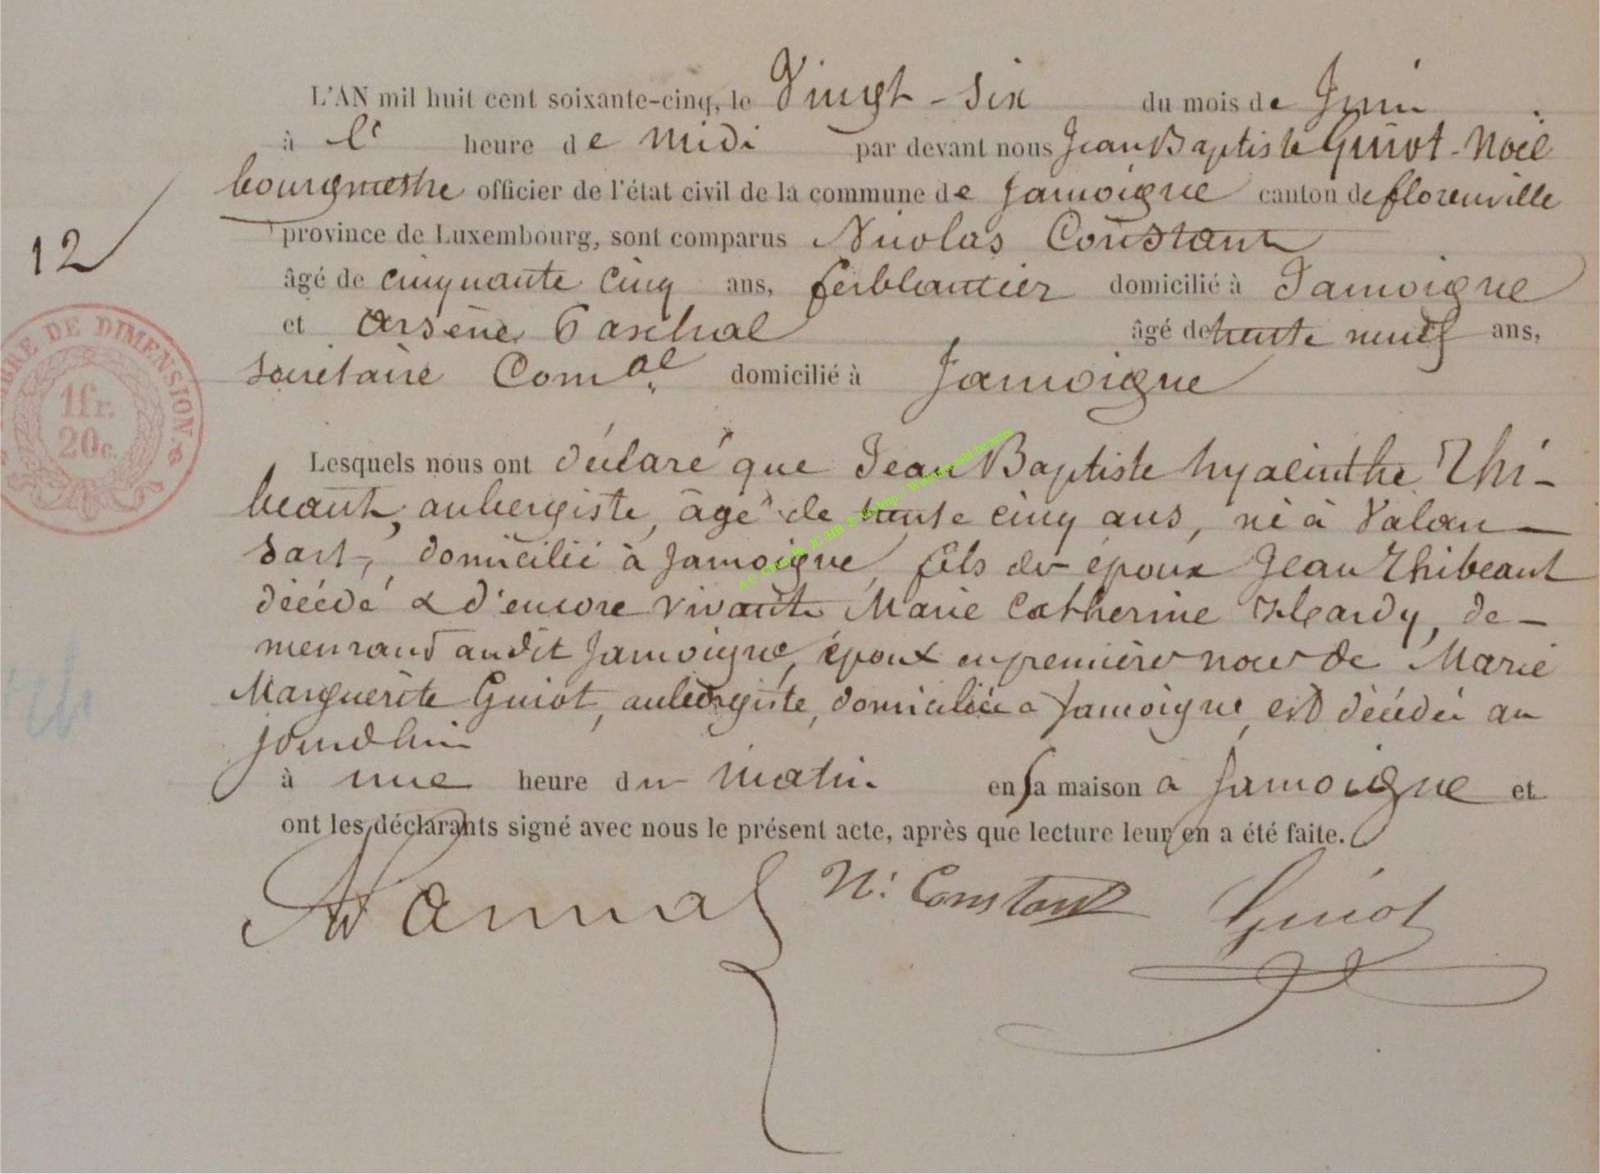 L'AN mil huit cent soixante-cinq, le Vingt-Six du mois de Juin
à l' heure de midi par devant nous Jean Baptiste Guiot-Noël
bourgmestre officier de l'état civil de la commune de Jamoigne canton de florenville
12
province de Luxembourg, sont comparus Nicolas Constant
âgé de cinquante cinq ans, ferblantier domicilié à Jamoigne
et Arsène Paschal âgé de trente neuf ans,
secrétaire Comal domicilié à Jamoigne
TIMBRE DE DIMENSION
1fr.
20c.
Lesquels nous ont déclaré que Jean Baptiste hyacinthe Thi-
beaut, aubergiste, âgé de trente cinq ans, né à Valan-
sart, domicilié à Jamoigne, fils des époux Jean Thibeaut
décédé & d'encore vivante Marie Catherine Hardy, de-
meurant audit Jamoigne, époux en premières noces de Marie
Marguerite Guiot, aubergiste, domiciliée à Jamoigne, est décédé au
jourdhui
à une heure du matin en sa maison a Jamoigne et
ont les déclarants signé avec nous le présent acte, après que lecture leur en a été faite.
N: Constant Guiot